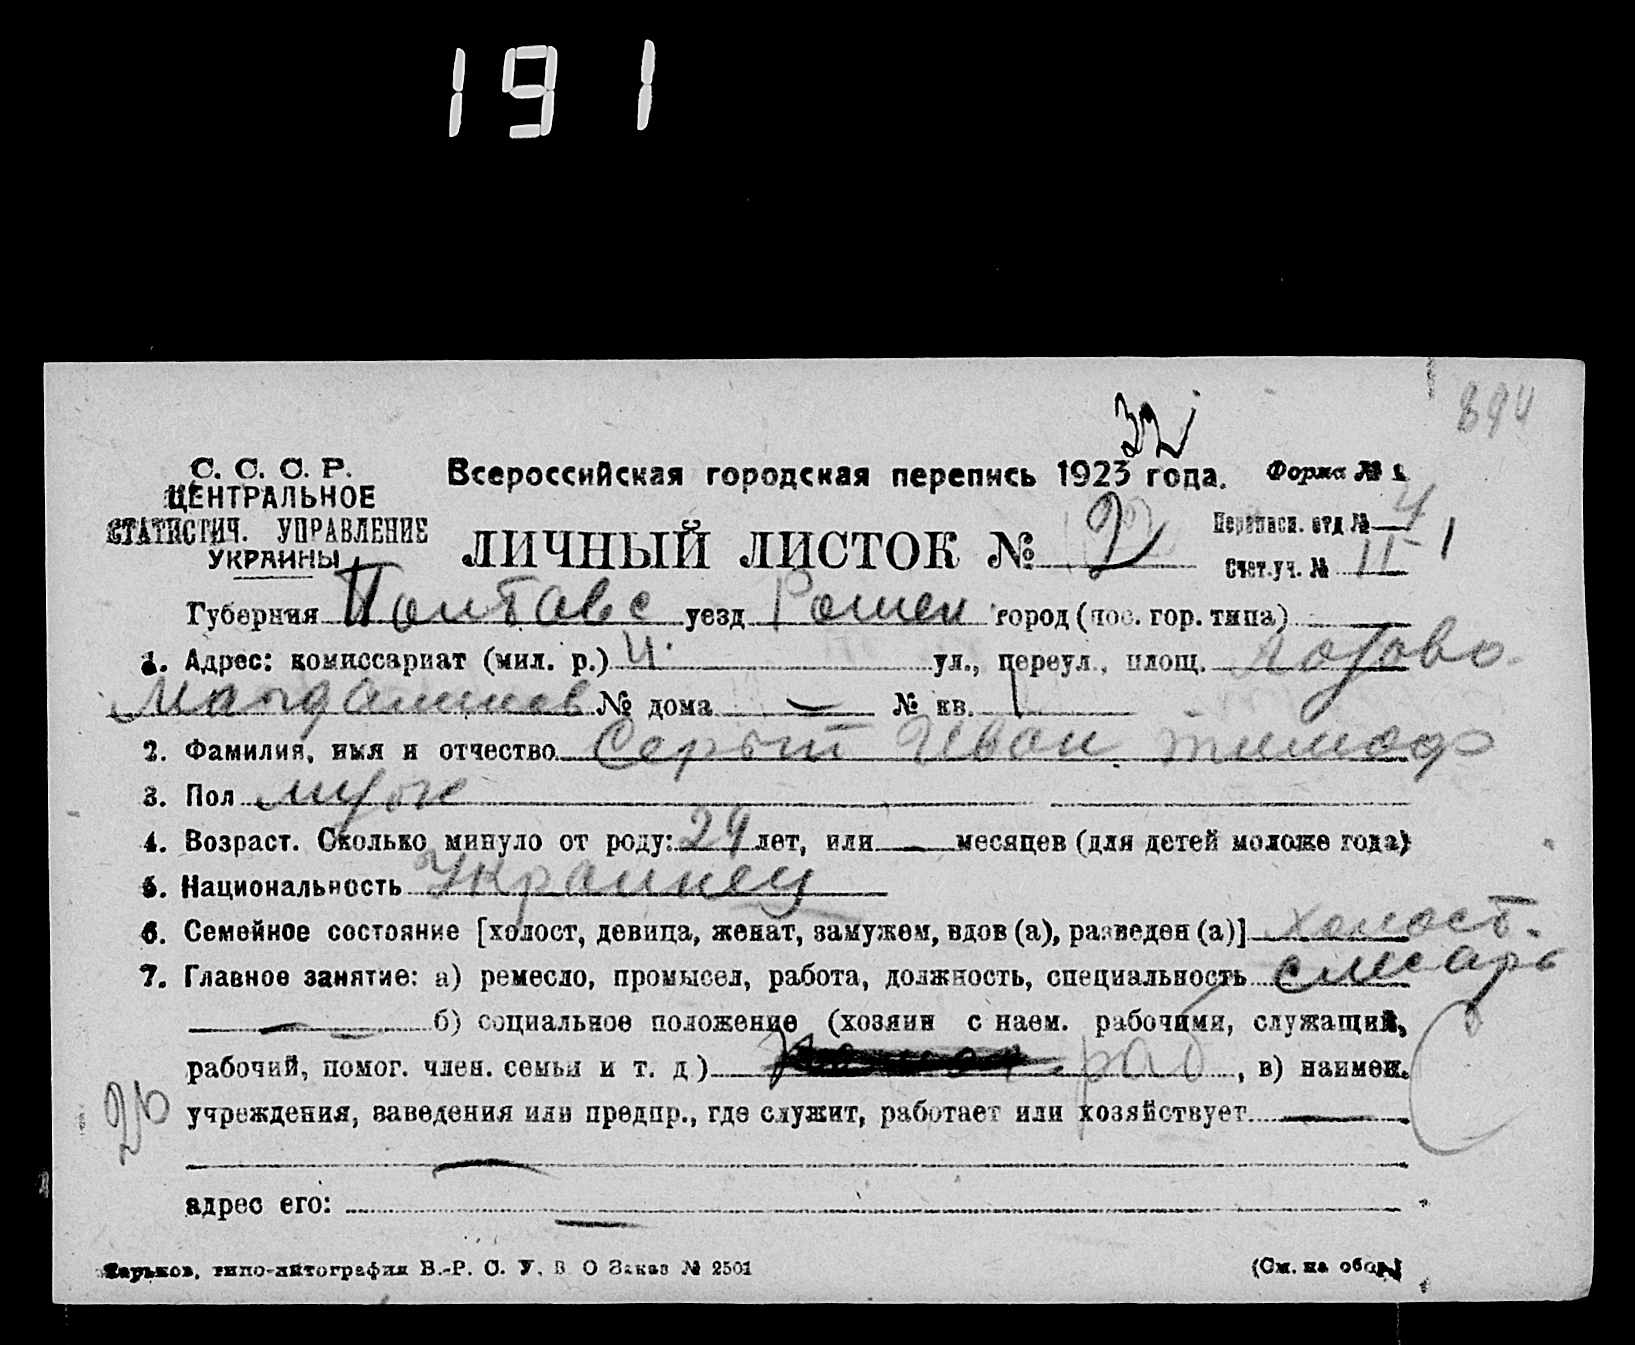 191
894
32
С. С. С. Р. Всероссийская городская перепись 1923 года. Форма № 1
ЦЕНТРАЛЬНОЕ
СТАТИСТИЧ. УПРАВЛЕНИЕ ЛИЧНЫЙ ЛИСТОК № 2 Переписн. отд № 4
УКРАИНЫ Счет.уч. № II-1
Губерния Полтавс уезд Ромен город (пос. гор. типа)
1. Адрес: комиссариат (мил. р.) 4. ул., переул., площ. Лозово
№ дома — № кв. 1
2. Фамилия, имя и отчество Серый Иван Тимоф
3. Пол муж
4. Возраст. Сколько минуло от роду: 24 лет, или — месяцев (для детей моложе года)
5. Национальность Украинец
6. Семейное состояние [холост, девица, женат, замужем, вдов (а), разведен (а)] холост.
7. Главное занятие: а) ремесло, промысел, работа, должность, специальность слесарь
— б) социальное положение (хозяин с наем. рабочими, служащий,
рабочий, помог. член. семьи и т. д) раб, в) наимен.
26 учреждения, заведения или предпр., где служит, работает или хозяйствует —
—
адрес его: —
Харьков, типо-литография В.-Р. С. У. В О Заказ № 2501 (См. на обор.)